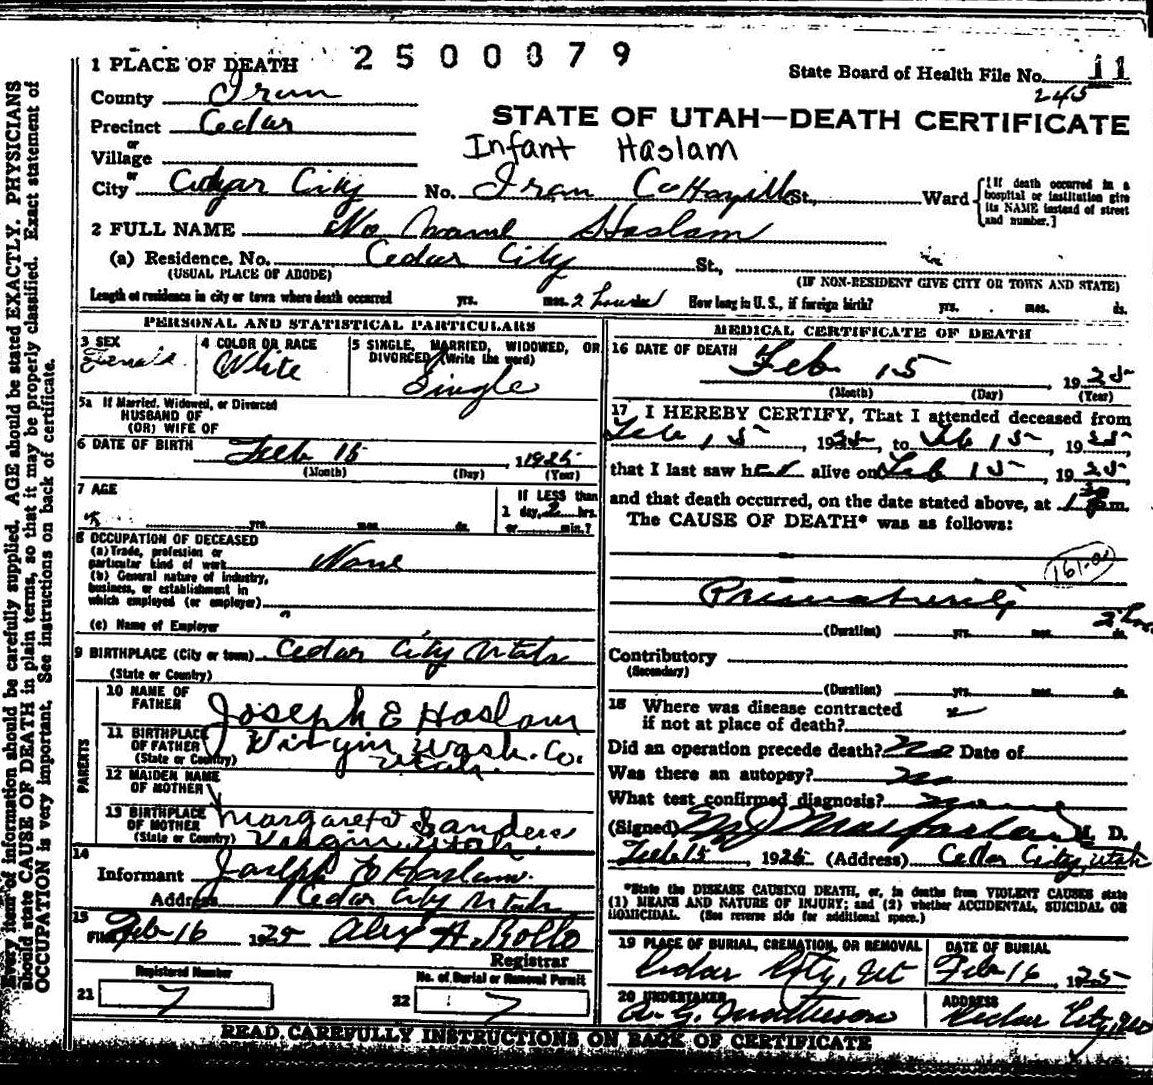 2500079
1 PLACE OF DEATH
State Board of Health File No. 11
County Iron
245
Precinct Cedar
STATE OF UTAH—DEATH CERTIFICATE
or
Village
Infant Haslam
or
City Cedar City No. Iron Co Hospital St., Ward
[If death occurred in a hospital or institution give its NAME instead of street and number.]
2 FULL NAME No Name Haslam
(a) Residence, No. Cedar City St.,
(USUAL PLACE OF ABODE) (IF NON-RESIDENT GIVE CITY OR TOWN AND STATE)
Length of residence in city or town where death occurred yrs. mos. 2 hours ds. How long in U. S., if foreign birth? yrs. mos. ds.
PERSONAL AND STATISTICAL PARTICULARS
3 SEX Female
4 COLOR OR RACE White
5 SINGLE, MARRIED, WIDOWED, OR DIVORCED (Write the word) Single
5a If Married, Widowed, or Divorced
HUSBAND OF
(OR) WIFE OF
6 DATE OF BIRTH Feb 15, 1925
(Month) (Day) (Year)
7 AGE
yrs. mos. ds.
If LESS than
1 day, 2 hrs.
or min.?
8 OCCUPATION OF DECEASED
(a) Trade, profession or
particular kind of work None
(b) General nature of industry,
business, or establishment in
which employed (or employer)
(c) Name of Employer
9 BIRTHPLACE (City or town) Cedar City Utah
(State or Country)
PARENTS
10 NAME OF FATHER Joseph E Haslam
11 BIRTHPLACE OF FATHER Virgin Wash. Co. Utah.
(State or Country)
12 MAIDEN NAME OF MOTHER Margaret Sanders
13 BIRTHPLACE OF MOTHER Virgin Utah.
(State or Country)
14
Informant Joseph E Haslam.
Address Cedar City Utah
15
Filed Feb 16 1925 Alex H. Rollo
Registrar
Registered Number
21 7
No. of Burial or Removal Permit
22 7
MEDICAL CERTIFICATE OF DEATH
16 DATE OF DEATH Feb 15, 1925
(Month) (Day) (Year)
17 I HEREBY CERTIFY, That I attended deceased from
Feb 15, 1925, to Feb 15, 1925,
that I last saw her alive on Feb 15, 1925,
and that death occurred, on the date stated above, at 1 30 m.
The CAUSE OF DEATH* was as follows:
161.0
Prematurity
2 hrs.
(Duration) yrs. mos. ds.
Contributory
(Secondary)
(Duration) yrs. mos. ds.
18 Where was disease contracted
if not at place of death?
Did an operation precede death? No Date of
Was there an autopsy? No
What test confirmed diagnosis?
(Signed) M J Macfarlane M. D.
Feb 15, 1925 (Address) Cedar City, Utah
*State the DISEASE CAUSING DEATH, or, in deaths from VIOLENT CAUSES state
(1) MEANS AND NATURE OF INJURY; and (2) whether ACCIDENTAL, SUICIDAL OR
HOMICIDAL. (See reverse side for additional space.)
19 PLACE OF BURIAL, CREMATION, OR REMOVAL Cedar City, Ut
DATE OF BURIAL Feb 16, 1925
20 UNDERTAKER A. G. Matheson
ADDRESS Cedar City, Ut
READ CAREFULLY INSTRUCTIONS ON BACK OF CERTIFICATE
Every item of information should be carefully supplied. AGE should be stated EXACTLY. PHYSICIANS
should state CAUSE OF DEATH in plain terms, so that it may be properly classified. Exact statement of
OCCUPATION is very important. See instructions on back of certificate.